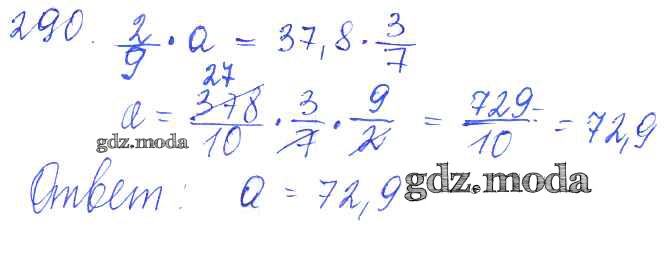 290. 2/9 · a = 37,8 · 3/7
27
a = 378/10 · 3/7 · 9/2 = 729/10 = 72,9
gdz.moda
Ответ: a = 72,9
gdz.moda